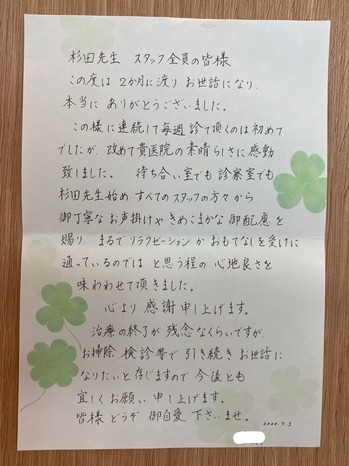 杉田先生 スタッフ全員の皆様
この度は 2か月に渡り お世話になり、
本当に ありがとうございました。
この様に連続して毎週 診て頂くのは初めて
でしたが、改めて貴医院の素晴らしさに感動
致しました。 待ち合い室でも 診察室でも
杉田先生始め すべてのスタッフの方々から
御丁寧な お声掛けや きめこまかな 御配慮を
賜り、まるでリラクゼーション か おもてなしを受けに
通っているのでは と思う程の 心地良さを
味わわせて頂きました。
心より 感謝 申し上げます。
治療の終了が 残念なくらいですが、
お掃除、検診等で 引き続き お世話に
なりたいと 存じますので 今後とも
宜しくお願い 申し上げます。
皆様 どうぞ 御自愛 下さいませ。
2020.7.3